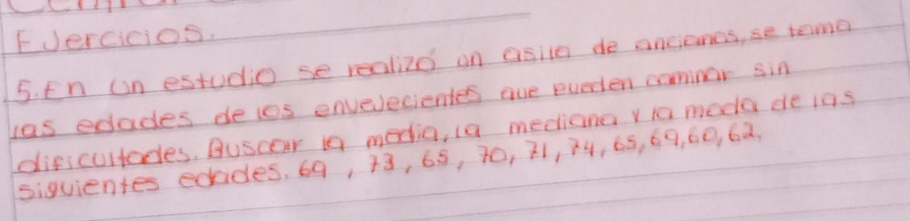 EJercicios.
5. En un estudio se realizó un asilo de ancianos, se toma
las edades de los envejecientes que pueden caminar sin
dificultades. Buscar la media, la mediana y la moda de las
siguientes edades. 69, 73, 65, 70, 71, 74, 65, 69, 60, 62,